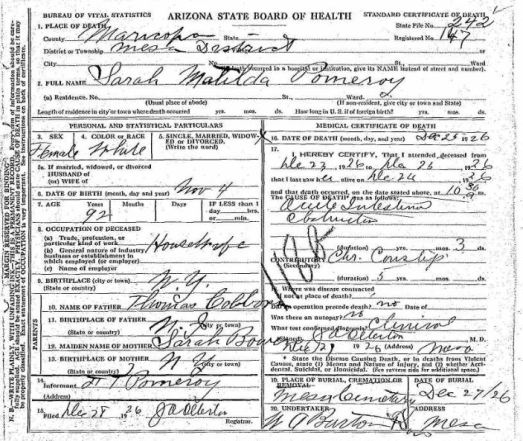 BUREAU OF VITAL STATISTICS
ARIZONA STATE BOARD OF HEALTH
STANDARD CERTIFICATE OF DEATH
1. PLACE OF DEATH
State File No. 242
County Maricopa State
Registered No. 147
District or Township Mesa District
City No. St., Ward
(If death occurred in a hospital or institution, give its NAME instead of street and number).
2. FULL NAME Sarah Matilda Pomeroy
(a) Residence. No. St., Ward.
(Usual place of abode)
(If non-resident, give city or town and State)
Length of residence in city or town where death occurred yrs. mos. ds.
How long in U. S. if of foreign birth? yrs. mos. ds.
PERSONAL AND STATISTICAL PARTICULARS
3. SEX
4. COLOR or RACE
5. SINGLE, MARRIED, WIDOWED or DIVORCED.
(Write the word)
Female White
5a. If married, widowed, or divorced
HUSBAND of
(or) WIFE of
6. DATE OF BIRTH (month, day and year) Nov 4
7. AGE Years Months Days IF LESS than 1
day hrs.
or min.
92
8. OCCUPATION OF DECEASED
(a) Trade, profession, or
particular kind of work
(b) General nature of industry
business or establishment in
which employed (or employer)
(c) Name of employer
9. BIRTHPLACE (city or town) N.Y.
(State or country)
PARENTS
10. NAME OF FATHER Thomas
11. BIRTHPLACE OF FATHER
(State or country)
12. MAIDEN NAME OF MOTHER Sarah
13. BIRTHPLACE OF MOTHER N.Y.
(State or country)
14. Informant Pomeroy
(Address)
15. Filed Dec 28 1926
Registrar.
MEDICAL CERTIFICATE OF DEATH
16. DATE OF DEATH (month, day, and year) 1926
17.
I HEREBY CERTIFY, That I attended deceased from
Dec 23, 1926 Dec 26 1926
that I last saw her alive on Dec 26 1926
and that death occurred, on the date stated above, at 10 30
The CAUSE OF DEATH was as follows:
Acute Intestinal
Obstruction
(duration) yrs. mos. 3 ds.
CONTRIBUTORY Chr. Constip
(Secondary)
(duration) 5 yrs. mos. ds.
18. Where was disease contracted
if not at place of death?
Did an operation precede death? no Date of
Was there an autopsy? no
What test confirmed diagnosis? Clinical
M. D.
19 26 (Address) Mesa
* State the Disease Causing Death, or in deaths from Violent
Causes, state (1) Means and Nature of Injury, and (2) whether
Accidental, Suicidal, or Homicidal. (See reverse side for additional space)
19. PLACE OF BURIAL, CREMATION OR REMOVAL
DATE OF BURIAL
Mesa Cemetery Dec 27/26
20. UNDERTAKER
ADDRESS
Burton Mesa